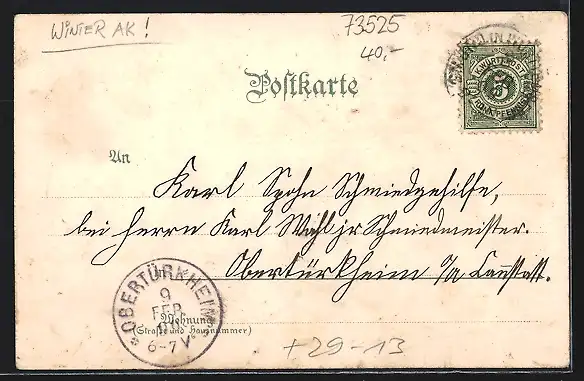 WINTER AK!
73525
40,-
Postkarte
K. WÜRTT. POST
5
FÜNF PFENNIG
An
Karl Spohn Schmiedgehilfe,
bei Herrn Karl Wahl jr Schmiedmeister.
Obertürkheim O/A Cannstatt.
OBERTÜRKHEIM
9
FEB
6-7 V
Wohnung
(Straße und Hausnummer)
+29-13